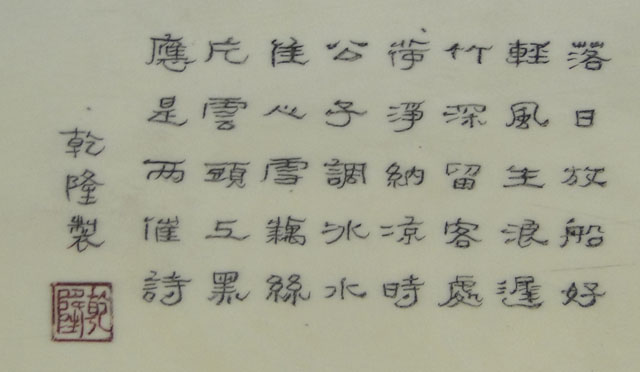 落日放船好
輕風生浪遲
竹深留客處
荷淨納凉時
公子調冰水
佳心雪藕絲
片雲頭上黑
應是雨催詩
乾隆製
乾隆